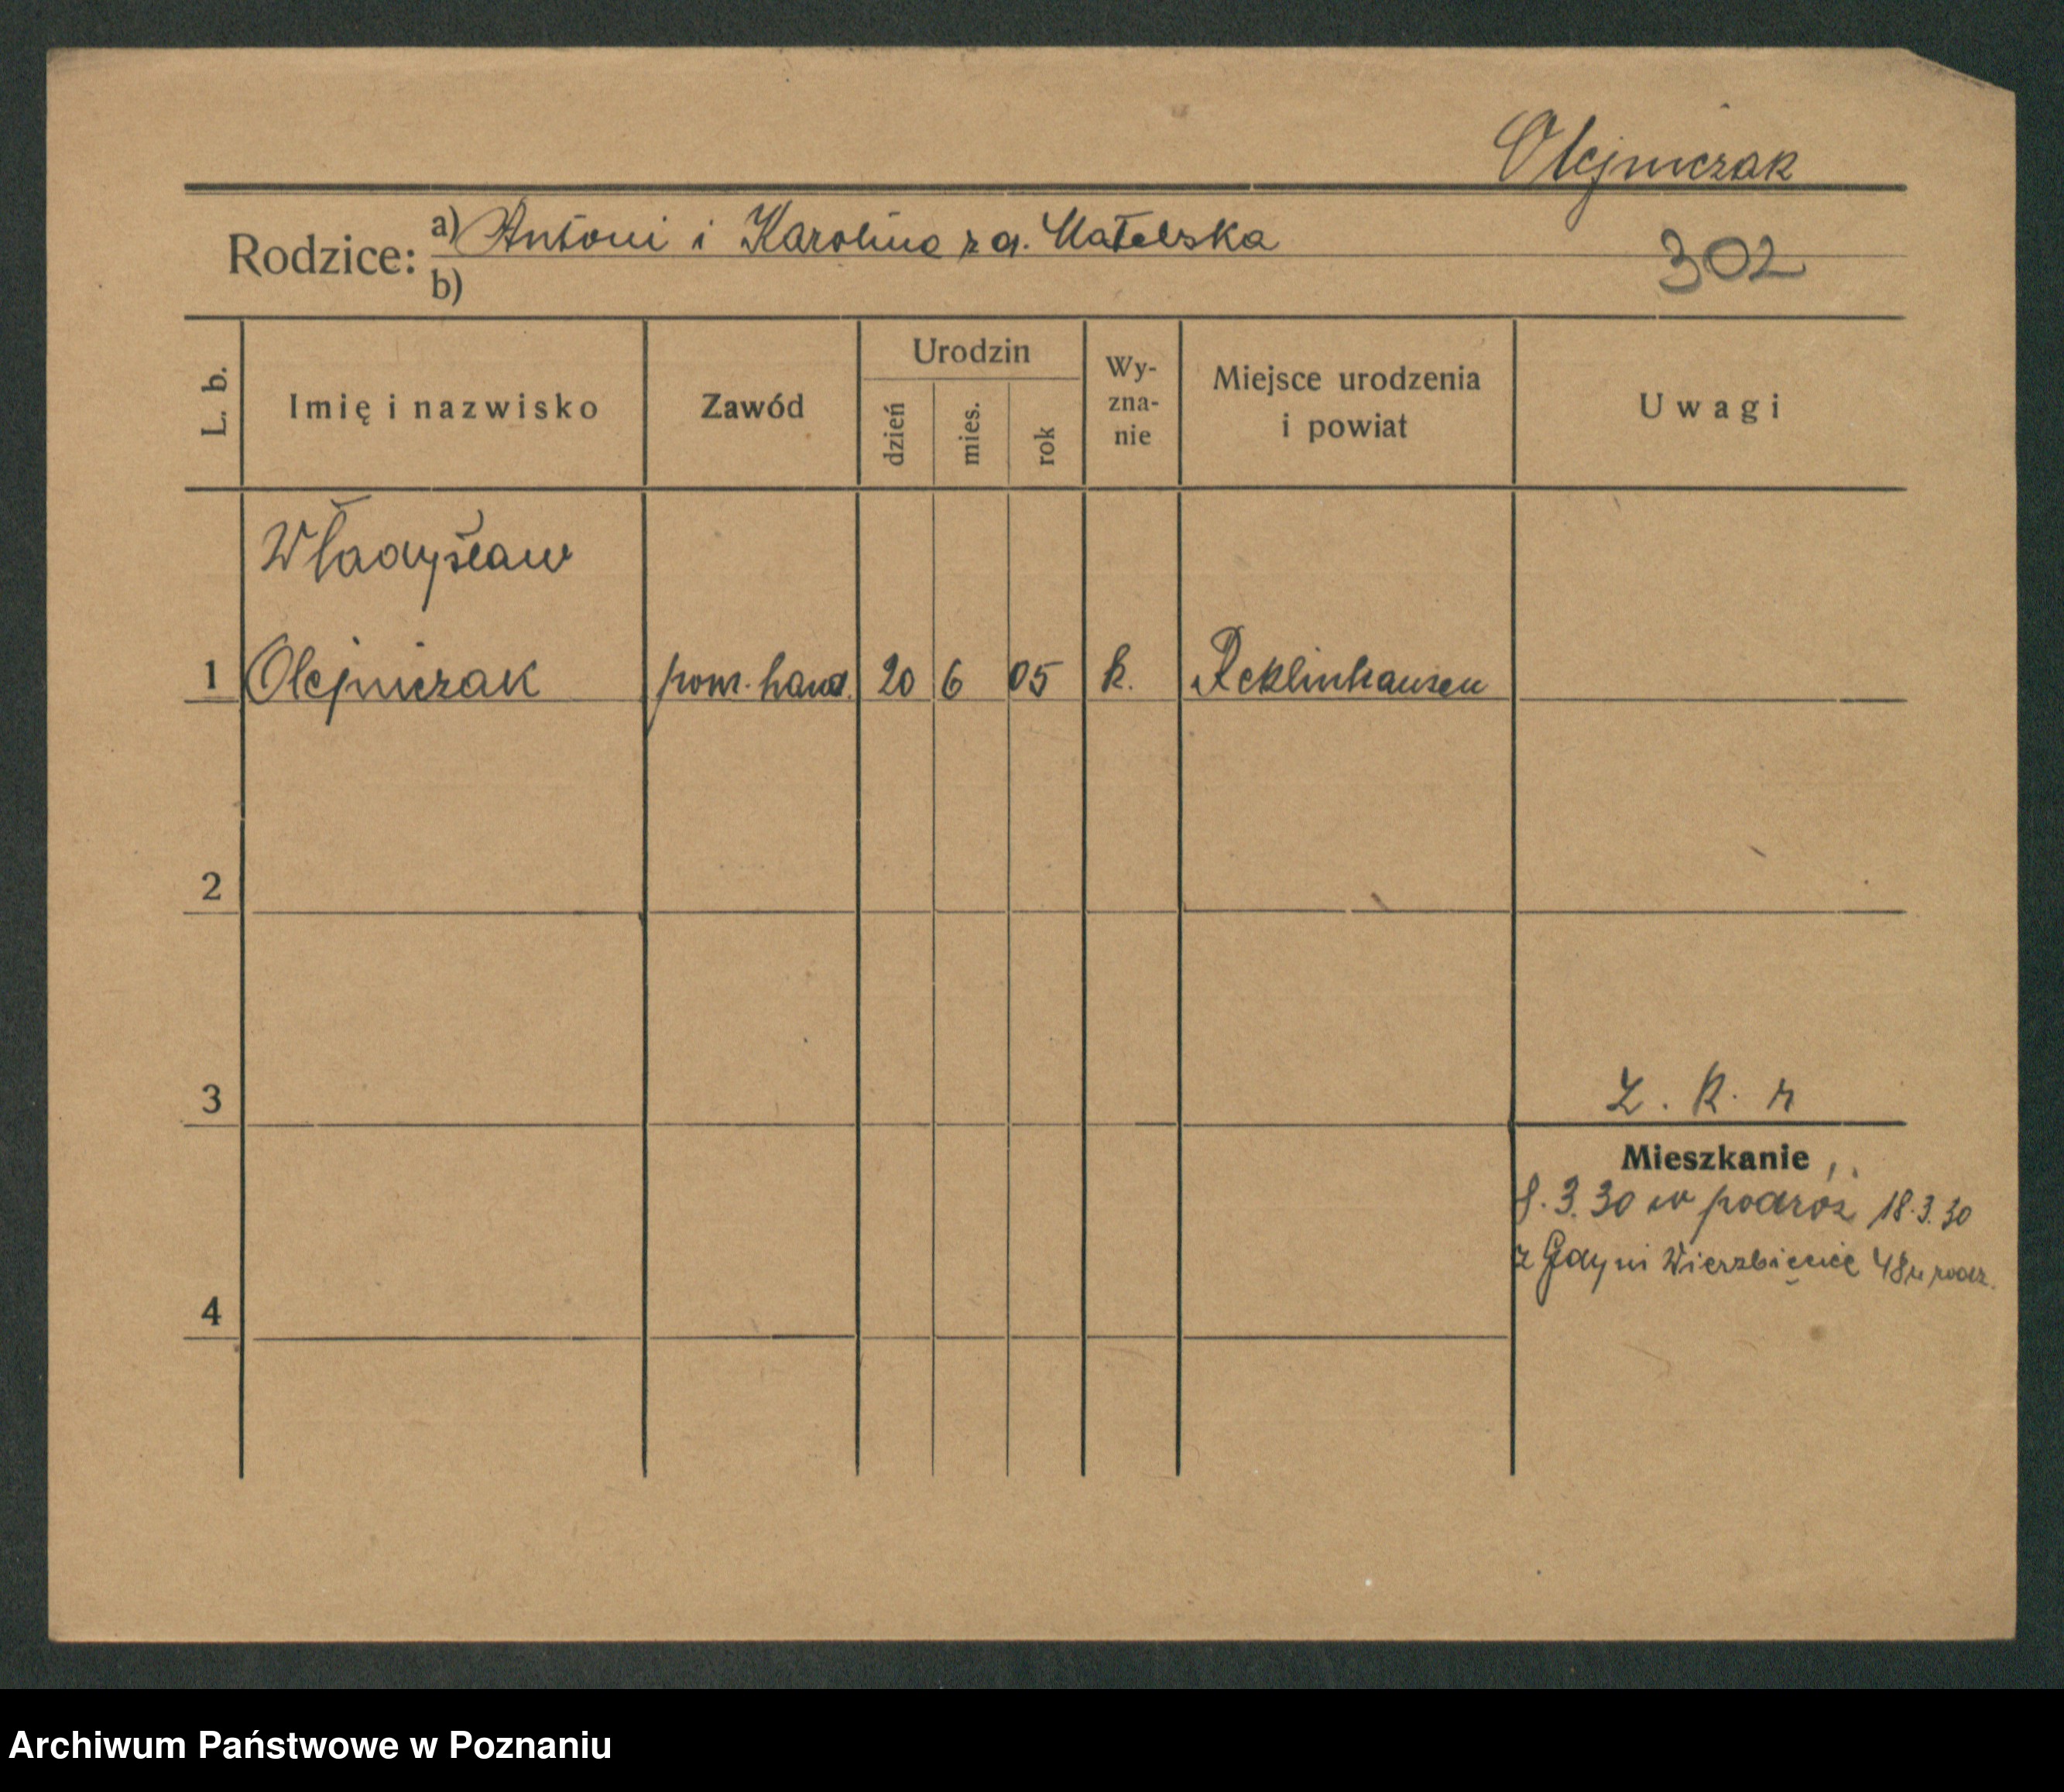 Olejniczak
Rodzice: a) Antoni i Karolina z d. Matelska
302
b)
L. b.
Imię i nazwisko
Zawód
Urodzin
dzień
mies.
rok
Wy-
zna-
nie
Miejsce urodzenia
i powiat
Uwagi
Władysław
1 Olejniczak pom. hand. 20 6 05 k. Reklinhausen
2
3
Z. K. r
Mieszkanie
8. 3. 30 w podróż 18. 3. 30
z Gdyni Wierzbięcice 48
4
Archiwum Państwowe w Poznaniu